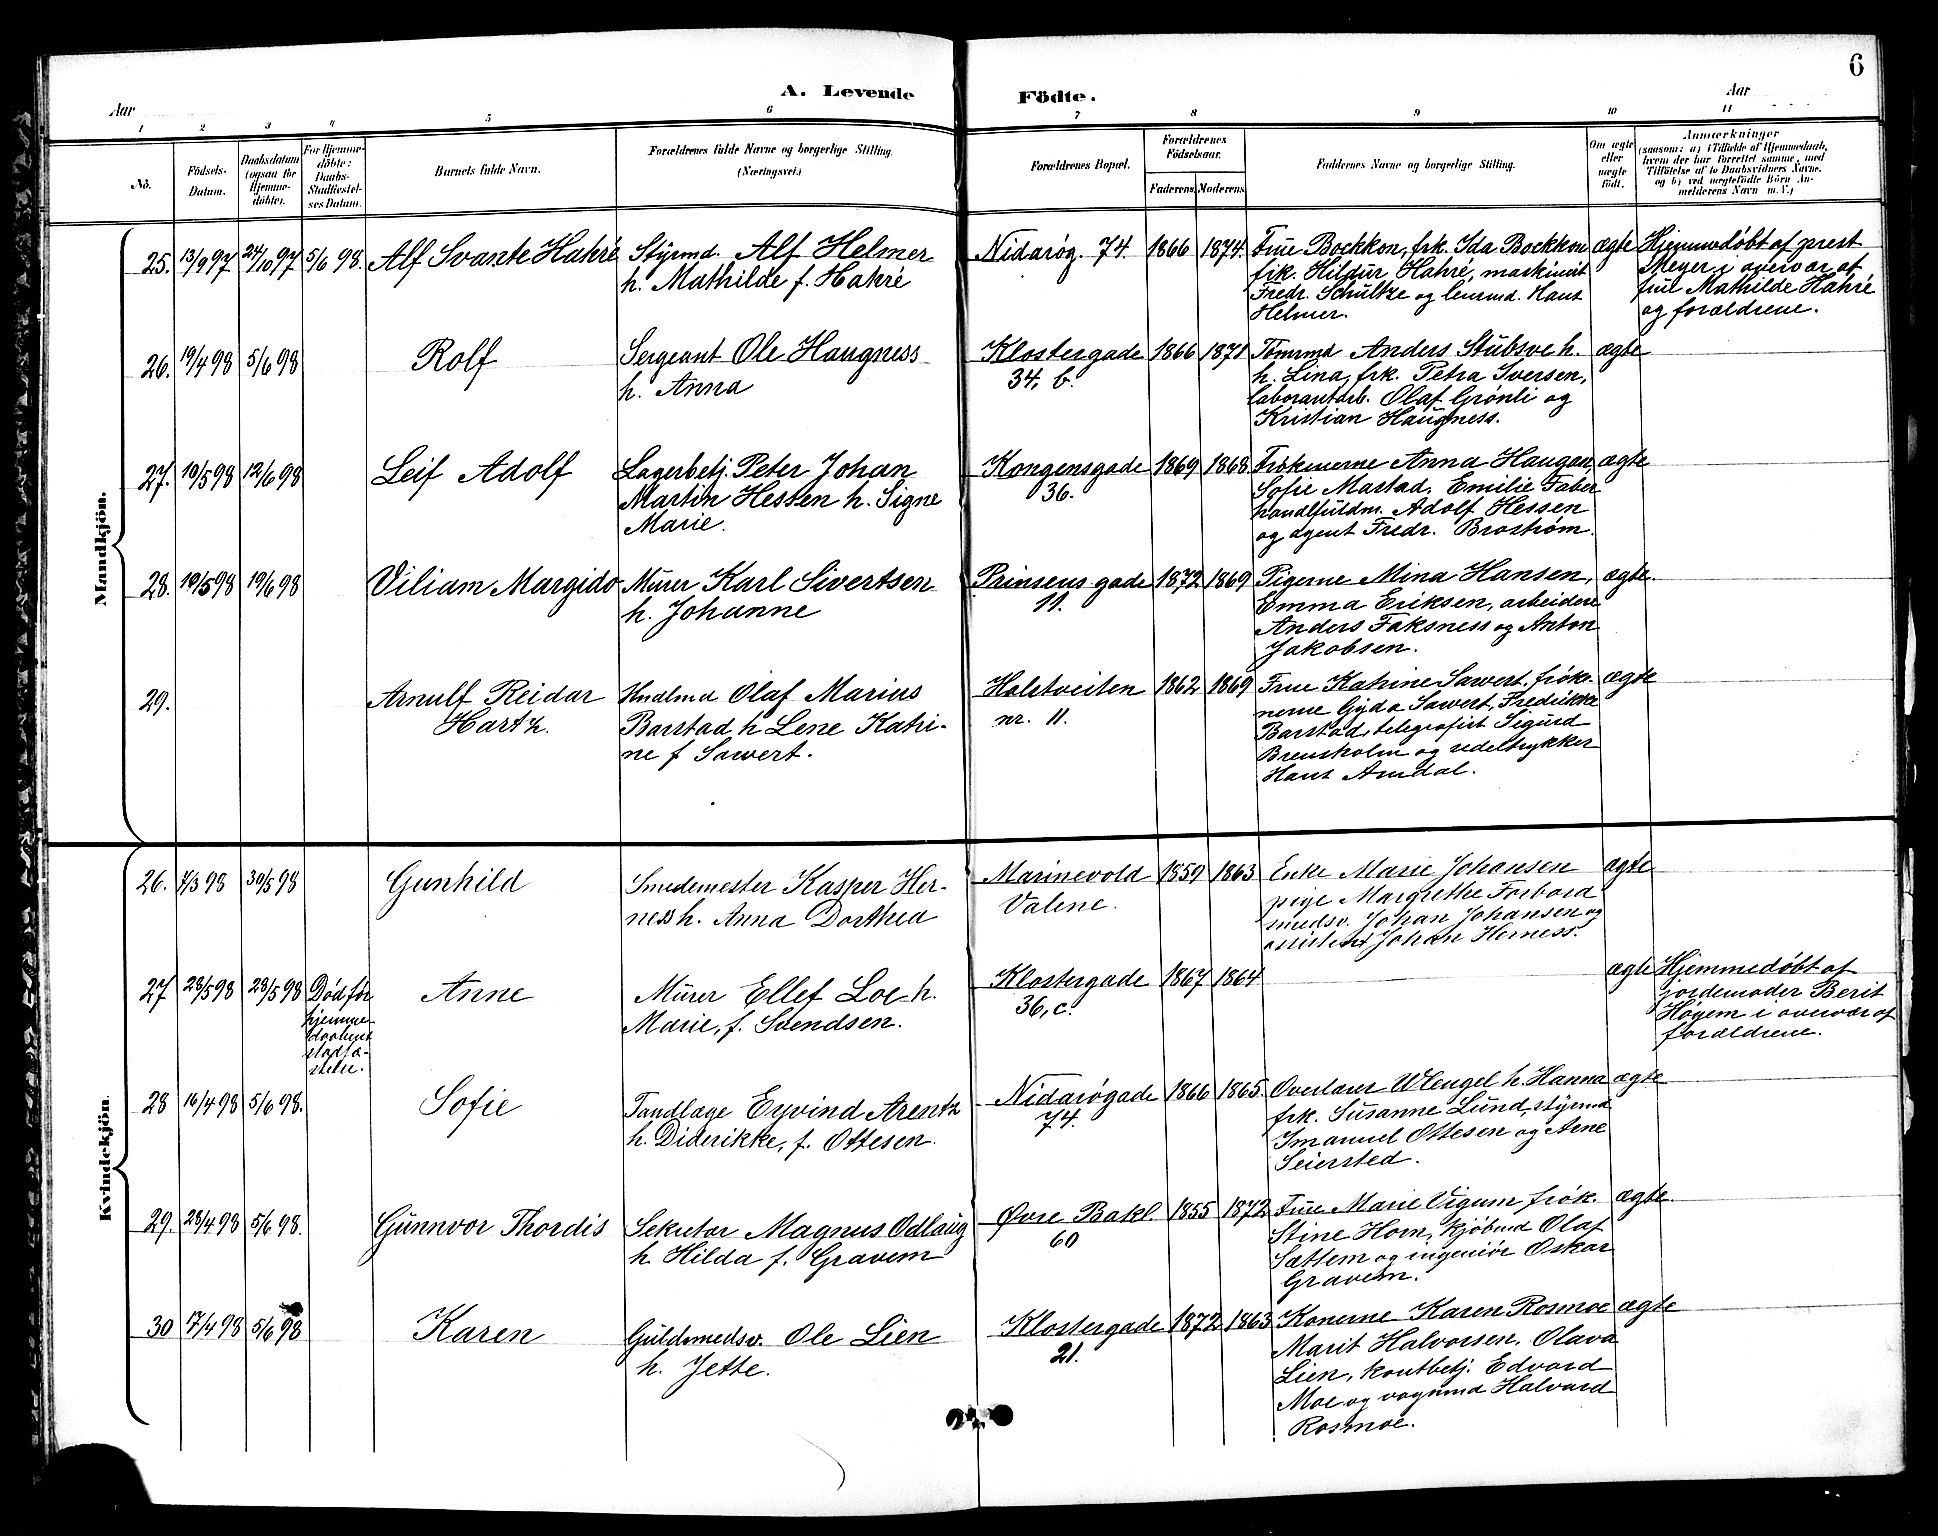 6
A. Levende Födte.
Aar
Aar
1 2 3 4 5 6 7 8 9 10 11
No.
Födsels-Datum.
Daabsdatum (ogsaa for Hjemme-döbte).
For Hjemme-döbte: Daabs-Stadfæstel-ses Datum.
Barnets fulde Navn.
Forældrenes fulde Navne og borgerlige Stilling. (Næringsvei.)
Forældrenes Bopæl.
Forældrenes Födselsaar.
Faderens. Moderens.
Faddernes Navne og borgerlige Stilling.
Om ægte eller uægte födt.
Anmærkninger
(saasom: a) i Tilfælde af Hjemmedaab, hvem der har forrettet samme, med Tilföielse af to Daabsvidners Navne. og b) ved uægtefödte Börn An-melderens Navn m. V.)
Mandkjön.
25. 13/9 97 24/10 97 5/6 98. Alf Svante Hahré
Styrmd. Alf Helmer
h. Mathilde f. Hahré
Nidarøg. 74. 1866 1874.
Frue Bockkon, frk. Ida Bockkon
frk. Hildur Hahré, maskinist
Fredr. Schultze og lensmd. Hans
Helmer.
ægte
Hjemmedøbt af prest
Meyer i overvær af
frue Mathilde Hahré
og forældrene.
26. 19/4 98 5/6 98 Rolf
Sergeant Ole Haugness
h. Anna
Klostergade
34, b.
1866 1871
Tømmd Anders Stubsve h.
h. Lina, frk. Petra Iversen,
laborantarb. Olaf Grønli og
Kristian Haugness.
ægte
27. 10/5 98 12/6 98 Leif Adolf
Lagerbetj. Peter Johan
Martin Hessen h. Signe
Marie.
Kongensgade
36.
1869 1868
Frøknerne Anna Haugen,
Sofie Mastad, Emilie Faber
handlfuldm. Adolf Hessen
og agent Fredr. Broström.
ægte
28. 10/5 98 19/6 98 Viliam Margido
Murer Karl Sivertsen
h. Johanne
Prinsens gade
11.
1872 1869
Pigerne Mina Hansen,
Emma Eriksen, arbeidere
Anders Faksness og Anton
Jakobsen.
ægte.
29. Arnulf Reidar
Hartz.
Hndlmd Olaf Marius
Barstad h Lene Katri-
ne f Sawert.
Holstveiten
nr. 11.
1862 1869
Frue Katrine Sawert, frøke-
nerne Gyda Sawert, Fredrikke
Barstad, telegrafist Sigurd
Brensholm og sedeltrykker
Hans Amdal.
ægte
Kvindekjön.
26. 7/3 98 30/5 98 Gunhild
Smedemester Kasper Her-
ness h. Anna Dorthea
Marinevold
Valene.
1859 1863
Enke Marie Johansen
pige Margrethe Forbord
smedsv. Johan Johansen og
assistent Johan Herness.
ægte
27 28/5 98 28/5 98
Død før
hjemme-
daabens
stadfæ-
stelse.
Anne
Murer Ellef Loe h.
Marie, f. Svendsen.
Klostergade
36, c.
1867 1864
ægte
Hjemmedøbt af
jordemoder Berit
Høyem i overvær af
forældrene.
28 16/4 98 5/6 98. Sofie
Tandlæge Eyvind Arentz
h. Diderikke, f. Ottesen.
Nidarøgade
74.
1866 1865.
Overlærer Wleugel h. Hanna
frk. Susanne Lund, styrmd
Imanuel Ottesen og Arne
Seiersted.
ægte
29. 28/4 98 5/6 98. Gunnvor Thordis
Sekretær Magnus Odlaug
h. Hilda f. Gravem
Øvre Bakl.
60
1855 1872
Frue Marie Vigum, frøk.
Stine Horn, kjöbmd Olaf
Sættem og ingeniør Oskar
Gravem.
ægte.
30 17/4 98 5/6 98 Karen
Guldsmedsv. Ole Lien
h. Jette.
Klostergade
21.
1872 1863
Konerne Karen Rosmoe
Marit Halvorsen, Olava
Lien, kontbetj. Edvard
Moe og vognmd Halvard
Rosmoe.
ægte